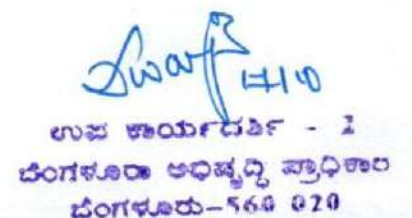 17/10
ಉಪ ಕಾರ್ಯದರ್ಶಿ - 1
ಬೆಂಗಳೂರು ಅಭಿವೃದ್ಧಿ ಪ್ರಾಧಿಕಾರ
ಬೆಂಗಳೂರು-560 020